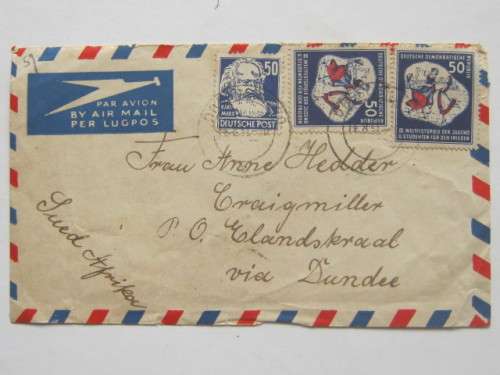 PAR AVION
BY AIR MAIL
PER LUGPOS
50
KARL
MARX
DEUTSCHE POST
DEUTSCHE DEMOKRATISCHE
REPUBLIK
50
III WELTFESTSPIELE DER JUGEND
U. STUDENTEN FÜR DEN FRIEDEN
DEUTSCHE DEMOKRATISCHE
REPUBLIK
50
III WELTFESTSPIELE DER JUGEND
U. STUDENTEN FÜR DEN FRIEDEN
Frau Anne Hedder
Craigmiller
P. O. Elandskraal
via Dundee
Sued Afrika